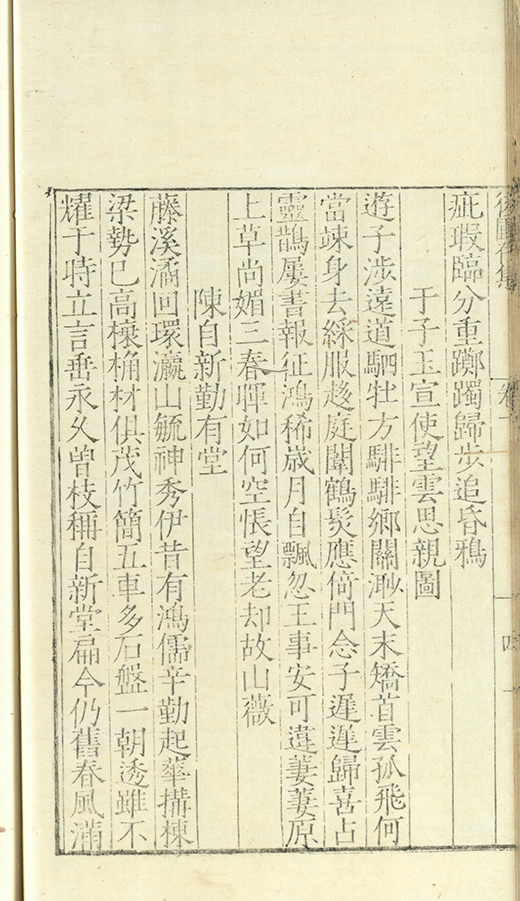 後圃 集 卷 四
疵瑕臨分重躑躅歸步追昏鴉
于子玉宣使望雲思親圖
遊子涉遠道駟牡方騑騑鄉關渺天末矯首雲孤飛何
當竦身去綵服趍庭闈鶴髮應倚門念子遲遲歸喜占
靈鵲屢書報征鴻稀歲月自飄忽王事安可違萋萋原
上草尚媚三春暉如何空悵望老却故山薇
陳自新勤有堂
藤溪潏回環瀛山毓神秀伊昔有鴻儒辛勤起華搆棟
梁勢已高榱桷材俱茂竹簡五車多石盤一朝透雖不
耀于時立言垂永久曾枝稱自新堂扁今仍舊春風滿